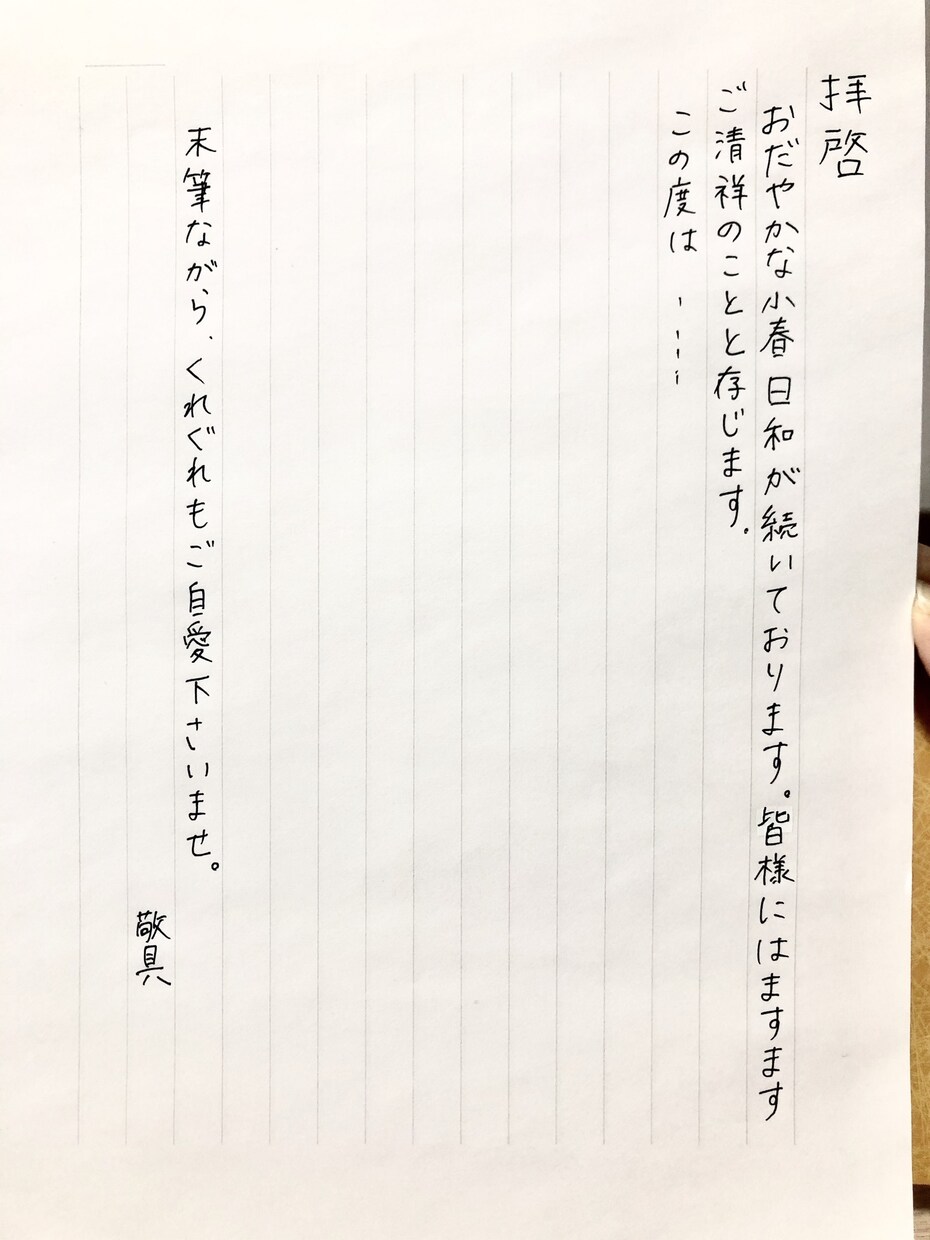 拝啓
おだやかな小春日和が続いております。皆様にはますます
ご清祥のことと存じます。
この度は、……
末筆ながら、くれぐれもご自愛下さいませ。
敬具